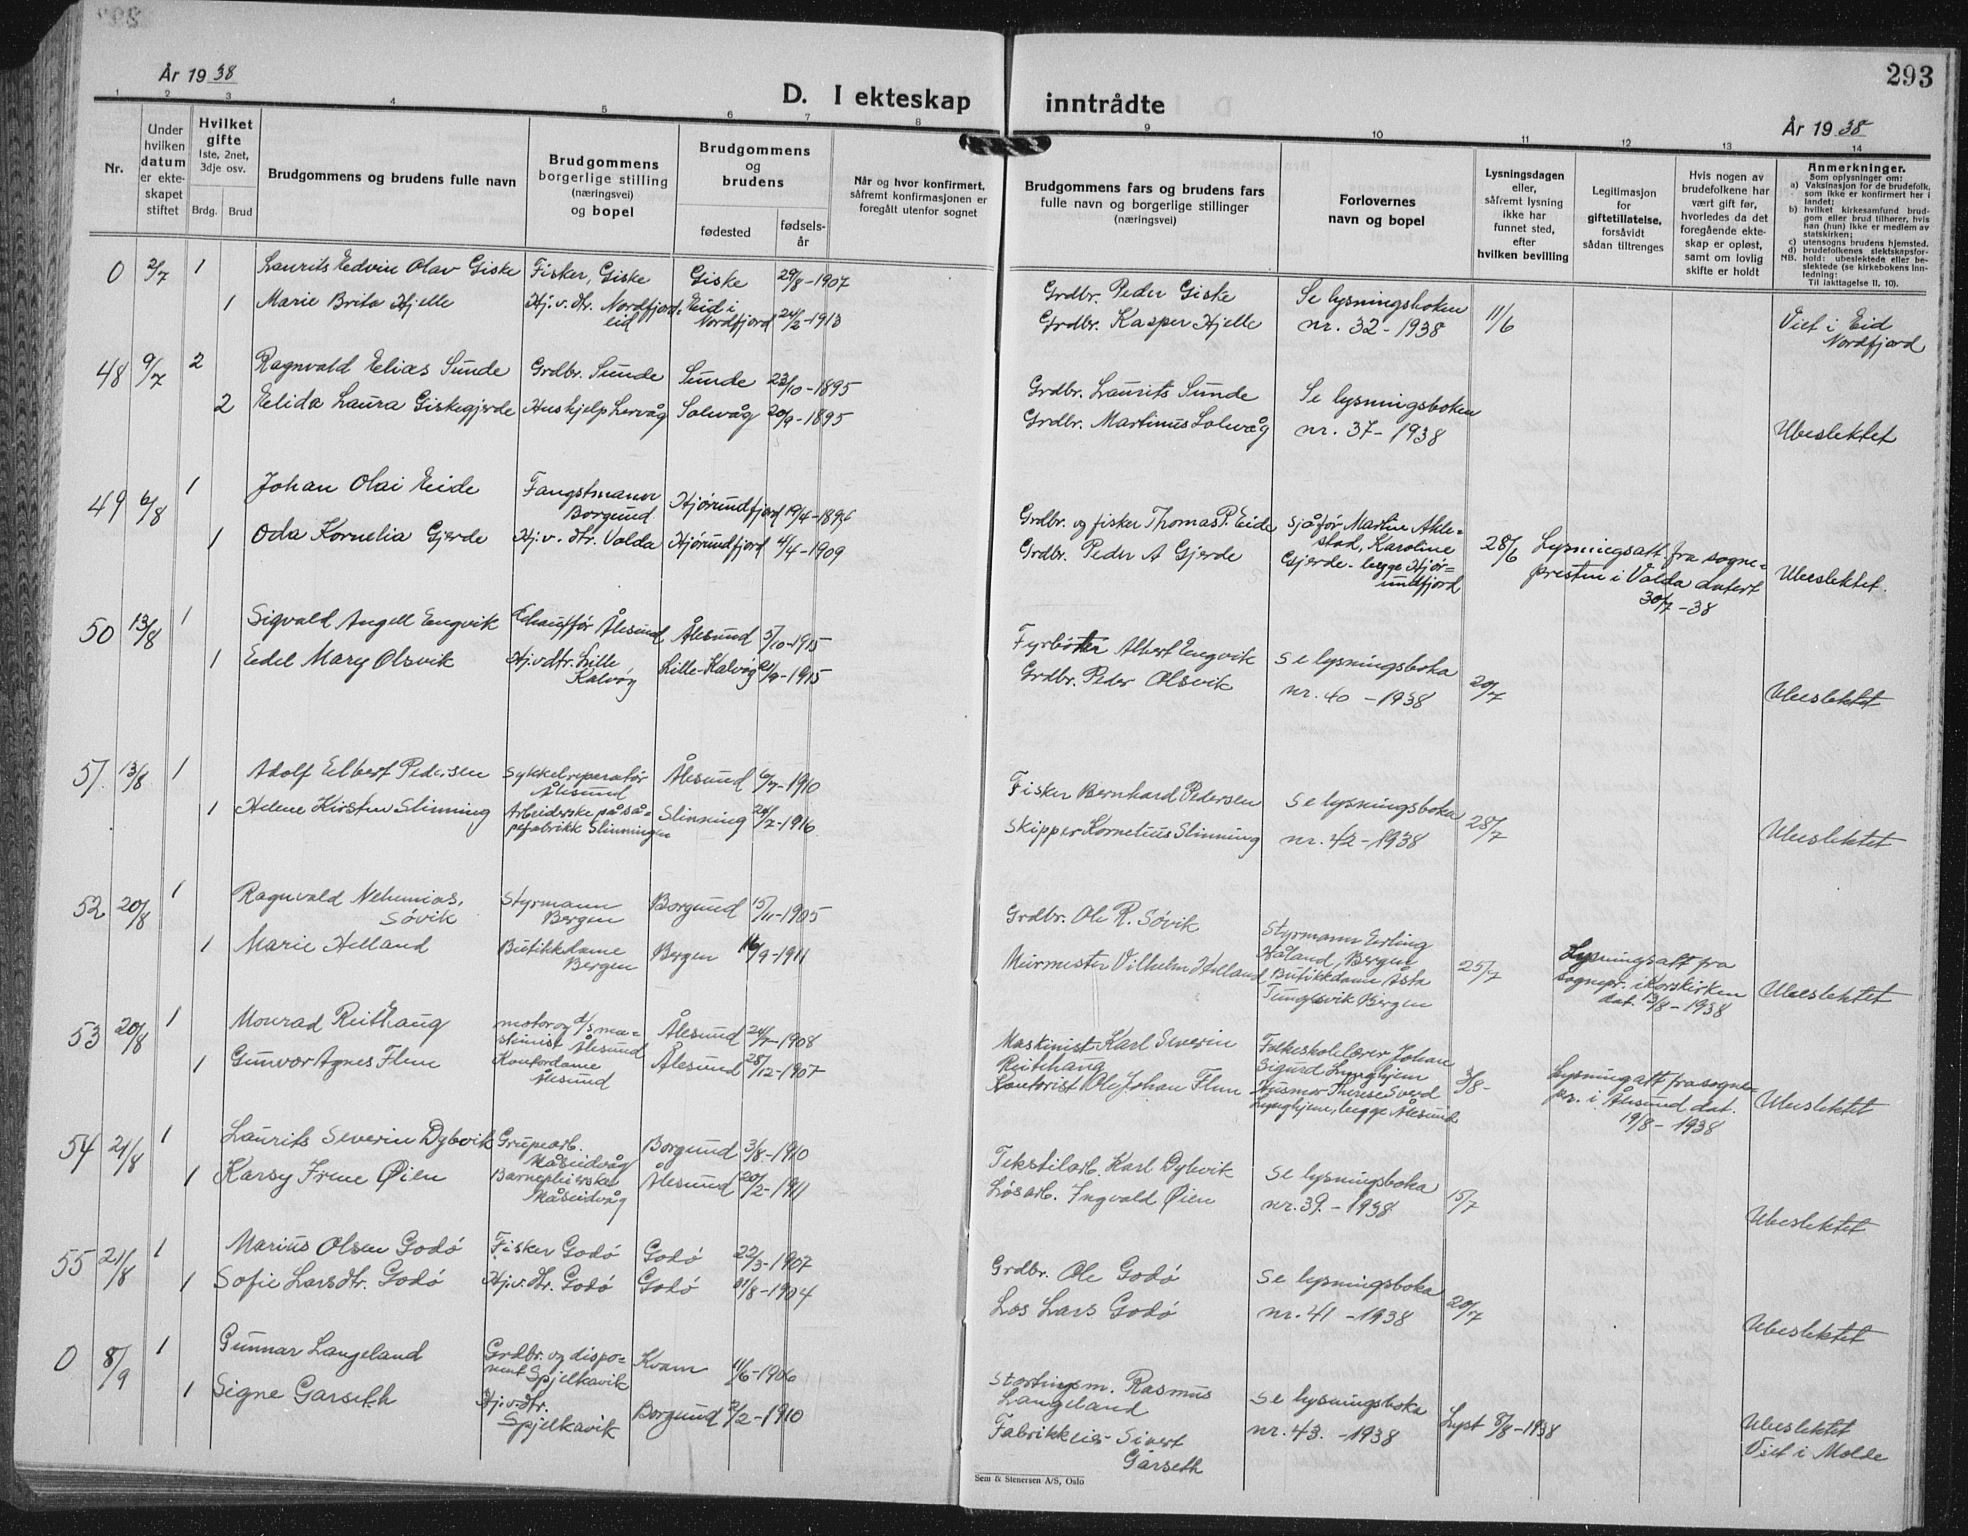 293
År 1938
D. I ekteskap inntrådte
År 1938
1 2 3 4 5 6 7 8 9 10 11 12 13 14
Nr.
Under hvilken datum er ekteskapet stiftet
Hvilket gifte
1ste, 2net, 3dje osv.
Brdg. Brud
Brudgommens og brudens fulle navn
Brudgommens borgerlige stilling (næringsvei) og bopel
Brudgommens og brudens
fødested
fødsels-år
Når og hvor konfirmert, såfremt konfirmasjonen er foregått utenfor sognet
Brudgommens fars og brudens fars fulle navn og borgerlige stillinger (næringsvei)
Forlovernes navn og bopel
Lysningsdagen eller, såfremt lysning ikke har funnet sted, efter hvilken bevilling
Legitimasjon for giftetillatelse, forsåvidt sådan tiltrenges
Hvis nogen av brudefolkene har vært gift før, hvorledes da det foregående ekteskap er opløst, samt om lovlig skifte er holdt
Anmerkninger.
Som oplysninger om:
a) Vaksinasjon for de brudefolk, som ikke er konfirmert her i landet;
b) hvilket kirkesamfund brudgom eller brud tilhører, hvis han (hun) ikke er medlem av statskirken;
c) utensogns brudens hjemsted.
d) brudefolkenes slektskapsforhold: ubeslektede eller beslektede (se kirkebokens innledning:
NB. Til iakttagelse II. 10).
0 2/7 1 Laurits Edvin Olav Giske Fisker, Giske Giske 29/8-1907 Grdbr. Peder Giske Se lysningsboken
1 Marie Brita Hjelle Hj.v.dtr. Nordfjord- Eid i 24/2-1913 Grdbr. Kasper Hjelle nr. 32-1938 11/6 Viet i Eid
eid Nordfjord Nordfjord
48 9/7 2 Ragnvald Elias Sunde Grdbr. Sunde Sunde 23/10-1895 Grdbr. Laurits Sunde Se lysningsboken
2 Elida Laura Giskegjerde Hushjelp Lervåg Solevåg 20/9-1895 Grdbr. Martinus Solevåg nr. 37-1938 Ubeslektet
49 6/8 1 Johan Olai Eide Fangstmann Hjørundfjord 19/4-1896 Grdbr. og fisker Thomas P. Eide Sjåfør Martin Akle-
Borgund stad, Karoline
1 Oda Kornelia Gjerde Hj.v.dtr. Volda Hjørundfjord 4/4-1909 Grdbr. Peder A Gjerde Gjerde - begge Hjør- 28/6 Lysningsatt. fra sogne-
undfjord presten i Volda datert Ubeslektet.
30/7-38
50 13/8 1 Sigvald Angell Engvik Chauffør Ålesund Ålesund 5/10-1915 Fyrbøter Albert Engvik Se lysningsboka
1 Edel Mary Olsvik Hj.v.dtr. Lille Lille-Kalvøy 21/9-1915 Grdbr. Peder Olsvik nr. 40-1938 20/7 Ubeslektet
Kalvøy
51. 13/8 1 Adolf Elbert Pedersen Sykkelreparatør Ålesund 6/7-1910 Fisker Bernhard Pedersen Se lysningsboka
Ålesund
1 Helene Kirsten Slinning Arbeiderske på så- Slinning 24/7-1916 Skipper Kornelius Slinning nr. 42-1938 28/7 Ubeslektet
pefabrikk Slinningen
52 20/8 1 Ragnvald Nehemias. Styrmann Borgund 15/11-1905 Grdbr. Ole R. Søvik Styrmann Erling
Søvik Bergen Håland, Bergen
1 Marie Helland Butikkdame Bergen 16/9-1911 Murmester Vilhelm Helland Butikkdame Åsta 25/7 Lysningsatt fra
Bergen Tungesvik Bergen sognepr. i Korskirken Ubeslektet
dat. 13/8-1938
53 20/8 1 Monrad Reithaug motor og d/s ma- Ålesund 24/7-1908 Maskinist Karl Severin Folkeskolelærer Johan
skinist Ålesund Reitehaug Sigurd Lynghjem
1 Gunvor Agnes Flem Kontordame Ålesund 28/12-1907 Kontorist Ole Johan Flem Husmor Therese Sverd 3/8- Lysningatt fra sogne-
Ålesund Lynghjem, begge Ålesund pr. i Ålesund dat. Ubeslektet
19/8-1938
54 21/8 1 Laurits Severin Dybvik Grupearb. Borgund 3/8-1910 Tekstilarb. Karl Dybvik Se lysningsboka
Måseidvåg
1 Karsy Irene Øien Barnepleierske Ålesund 20/2-1911 Løsarb. Ingvald Øien nr. 39.-1938 15/7 Ubeslektet
Måseidvåg
55 21/8 1 Marius Olsen Godø Fisker Godø Godø 22/3-1907 Grdbr. Ole Godø Se lysningsboka
1 Sofie Larsdtr. Godø Hj.v.dtr. Godø Godø 31/8-1904 Los Lars Godø nr. 41-1938 20/7 Ubeslektet
0 8/9 1 Gunnar Langeland Grdbr. og dispo- Kvam 11/6-1906 Stortingsm. Rasmus Se lysningsboka
nent Spjelkavik Langeland
1 Signe Garseth Hj.v.dtr. Borgund 2/2-1910 Fabrikkeier Sivert nr. 43.-1938 Lyst 8/8-1938 Ubeslektet
Spjelkavik Garseth Viet i Molde
Sem & Stenersen A/S, Oslo